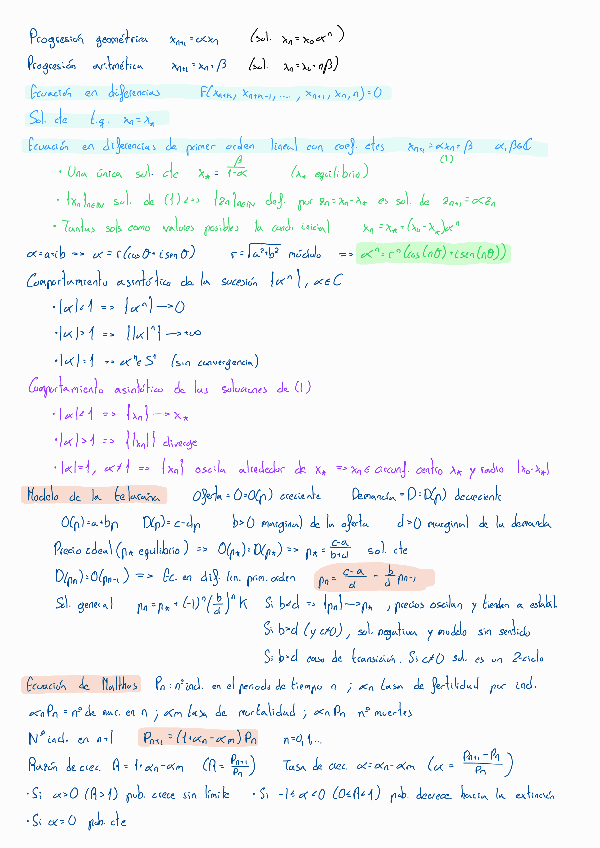 Progresión geométrica xₙ₊₁=αxₙ (sol. xₙ=x₀αⁿ)
Progresión aritmética xₙ₊₁=xₙ+β (sol. xₙ=x₀+nβ)
Ecuación en diferencias F(xₙ₊ₖ, xₙ₊ₖ₋₁, ..., xₙ₊₁, xₙ, n)=0
Sol. cte t.q. xₙ=x*
Ecuación en diferencias de primer orden lineal con coef. ctes xₙ₊₁=αxₙ+β (1) α,β∈ℂ
· Una única sol. cte x*=β/(1-α) (x* equilibrio)
· {xₙ}ₙ∈ℕ sol. de (1) <=> {zₙ}ₙ∈ℕ def. por zₙ=xₙ-x* es sol. de zₙ₊₁=αzₙ
· Tantas sols como valores posibles la cond. inicial xₙ=x*+(x₀-x*)αⁿ
α=a+ib => α=r(cosθ+isenθ) r=√(a²+b²) módulo => αⁿ=rⁿ(cos(nθ)+isen(nθ))
Comportamiento asintótico de la sucesión {αⁿ}, α∈ℂ
· |α|<1 => {αⁿ}→0
· |α|>1 => {|α|ⁿ}→+∞
· |α|=1 => αⁿ∈S¹ (sin convergencia)
Comportamiento asintótico de las soluciones de (1)
· |α|<1 => {xₙ}→x*
· |α|>1 => {|xₙ|} diverge
· |α|=1, α≠1 => {xₙ} oscila alrededor de x* => xₙ∈ circunf. centro x* y radio |x₀-x*|
Modelo de la telaraña Oferta=O=O(p) creciente Demanda=D=D(p) decreciente
O(p)=a+bp D(p)=c-dp b>0 marginal de la oferta d>0 marginal de la demanda
Precio ideal (p* equilibrio) => O(p*)=D(p*) => p*=(c-a)/(b+d) sol. cte
D(pₙ)=O(pₙ₋₁) => Ec. en dif. lin. prim. orden pₙ=(c-a)/d - (b/d)pₙ₋₁
Sol. general pₙ=p*+(-1)ⁿ(b/d)ⁿK Si b<d => {pₙ}→p*, precios oscilan y tienden a estabil.
Si b>d (y c≠0), sol. negativa y modelo sin sentido
Si b=d caso de transición. Si c≠0 sol. es un 2-ciclo
Ecuación de Malthus Pₙ: nº ind. en el periodo de tiempo n ; αₙ tasa de fertilidad por ind.
αₙPₙ = nº de nac. en n ; αₘ tasa de mortalidad ; αₘPₙ nº muertes
Nº ind. en n+1 Pₙ₊₁=(1+αₙ-αₘ)Pₙ n=0,1...
Razón de crec. A=1+αₙ-αₘ (A=Pₙ₊₁/Pₙ) Tasa de crec. α=αₙ-αₘ (α=(Pₙ₊₁-Pₙ)/Pₙ)
· Si α>0 (A>1) pob. crece sin límite · Si -1≤α<0 (0≤A<1) pob. decrece hacia la extinción
· Si α=0 pob. cte